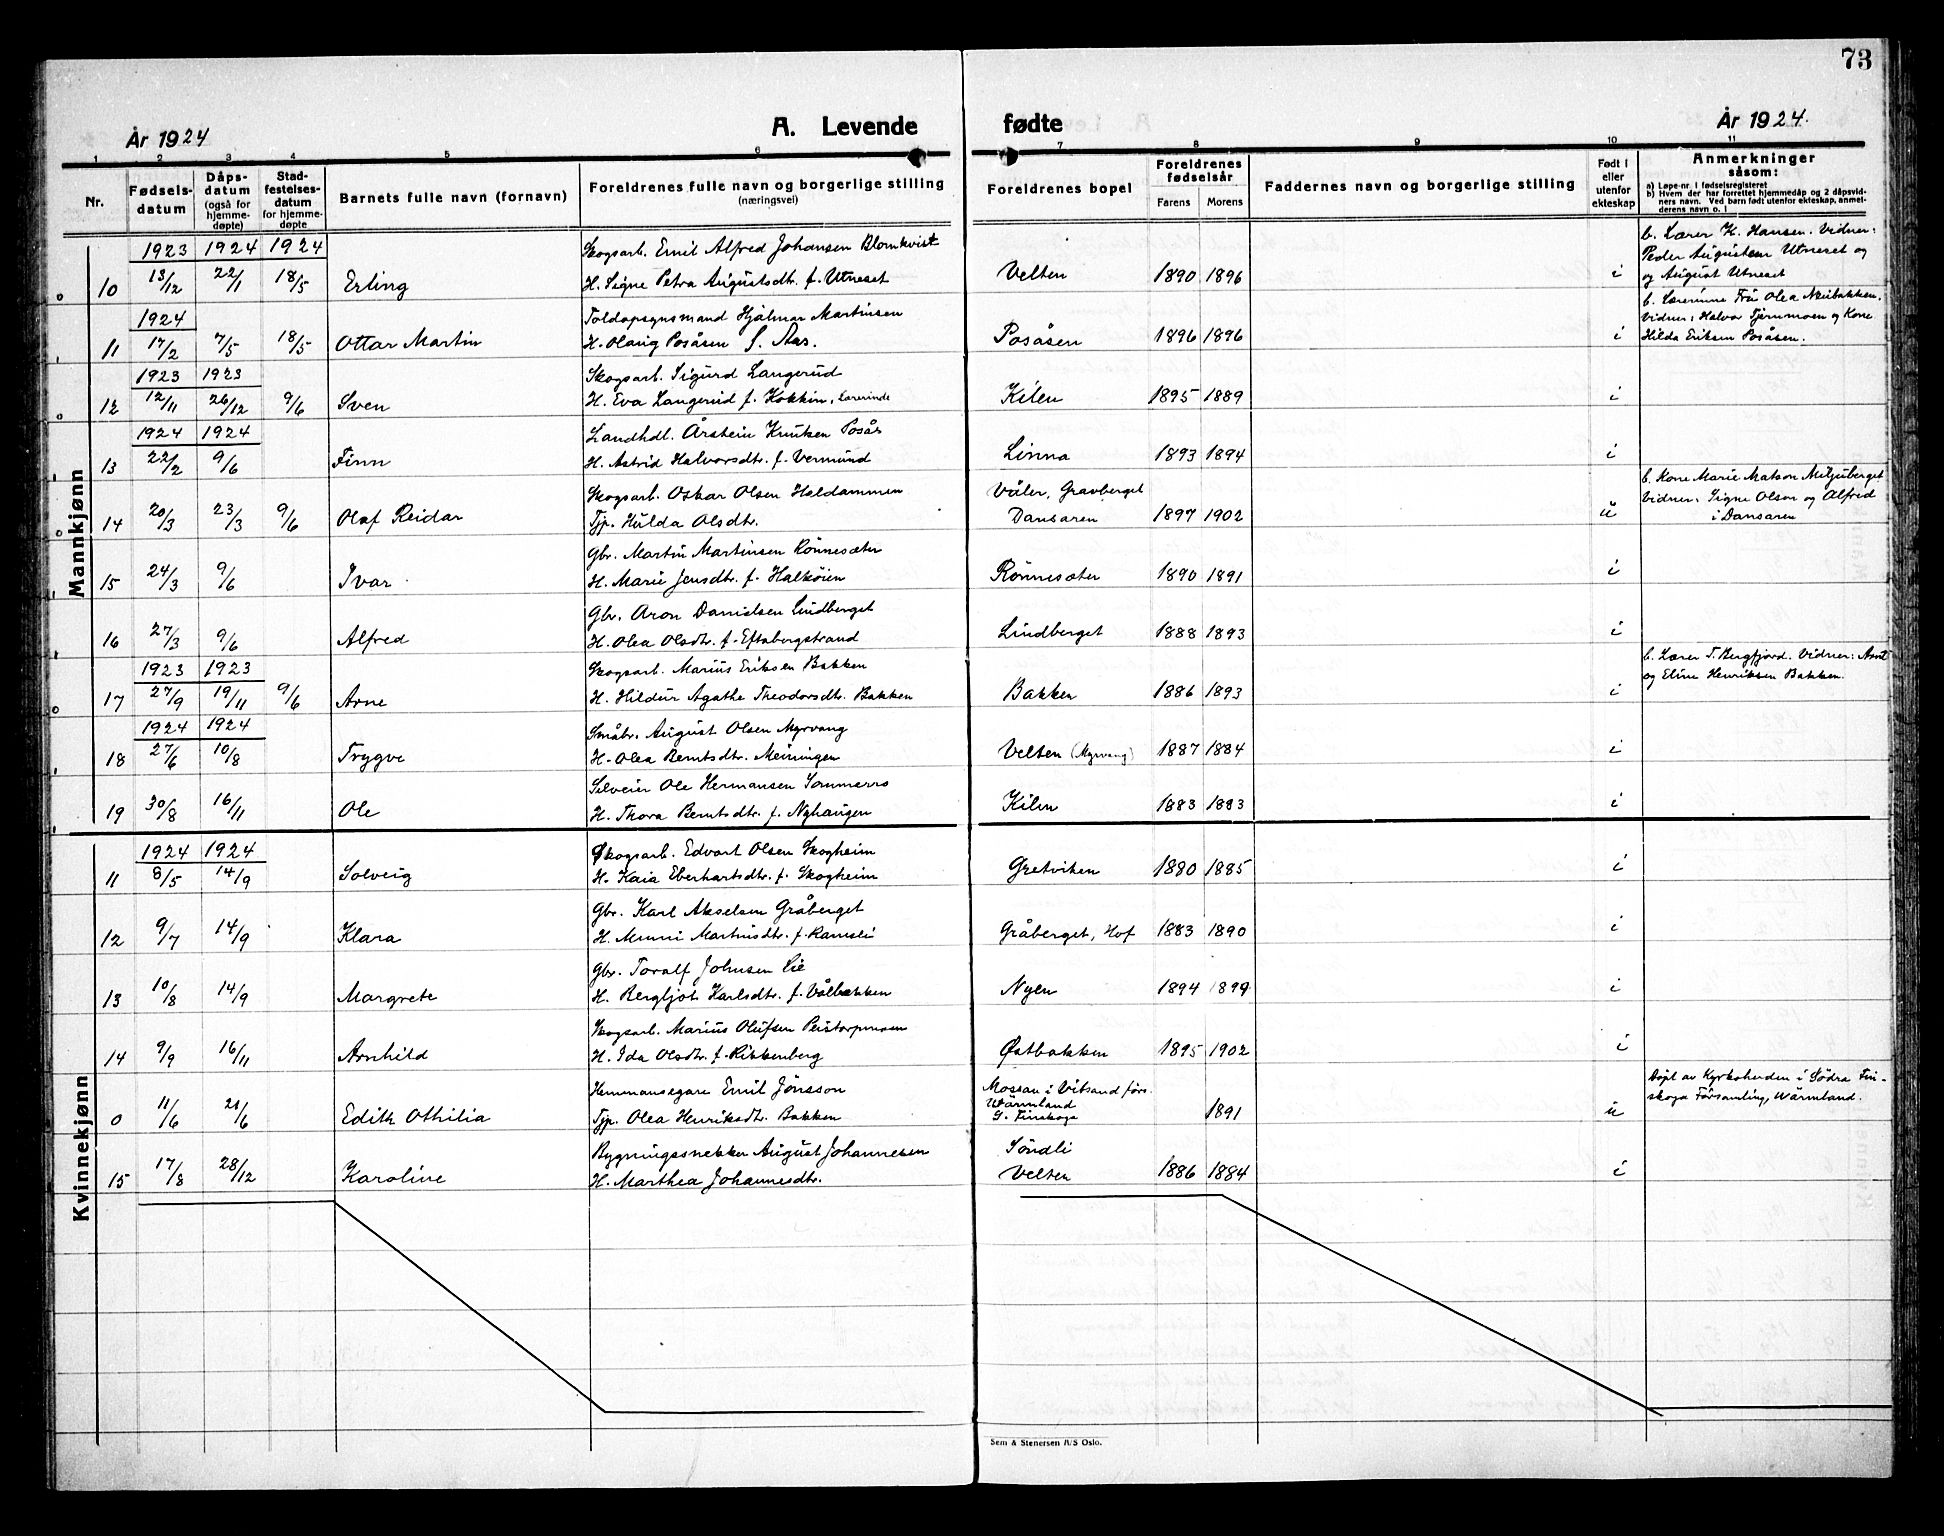 73
År 1924 A. Levende fødte År 1924.
1 2 3 4 5 6 7 8 9 10 11
Nr. Fødsels-datum Dåps-datum (også for hjemme-døpte) Stad-festelses-datum for hjemme-døpte Barnets fulle navn (fornavn) Foreldrenes fulle navn og borgerlige stilling (næringsvei) Foreldrenes bopel Foreldrenes fødselsår Farens Morens Faddernes navn og borgerlige stilling Født i eller utenfor ekteskap Anmerkninger såsom:
a) Løpe-nr. i fødselsregisteret
b) Hvem der har forrettet hjemmedåp og 2 dåpsvid-
ners navn. Ved barn født utenfor ekteskap, anmel-
derens navn o. l
Mannkjønn
1923 1924 1924 Skogsarb. Emil Alfred Johansen Blomkvist b. Lærer K. Hansen. Vidner:
Peder Augustsen Utneset og
0 10 13/12 22/1 18/5 Erling H. Signe Petra Augustsdtr. f. Utneset Velten 1890 1896 i og August Utneset
1924 Toldopsynsmand Hjalmar Martinsen b. Lærerinne Fru Olea Neibakken.
Vidner: Halvor Tjernmoen og Kone
1 11 17/2 7/5 18/5 Ottar Martin H. Olaug Posåsen f. Aas. Posåsen 1896 1896 i Hilda Eriksen Posåsen.
1923 1923 Skogsarb. Sigurd Langerud
0 12 12/11 26/12 9/6 Sven H. Eva Langerud f. Kokkin, Lærerinde Kilen 1895 1889 i
1924 1924 Landhdl. Årstein Knutsen Posås
1 13 22/2 9/6 Finn H. Astrid Halvorsdtr. f. Vermund Linna 1893 1894 i
Skogsarb. Oskar Olsen Haldammen Våler, Gravberget b. Kone Marie Matson Miljuberget
0 14 20/3 23/3 9/6 Olaf Reidar Tjp. Hulda Olsdtr. Dansaren 1897 1902 u Vidner: Signe Olson og Alfred
i Dansaren
Gbr. Martin Martinsen Rönnesæter
1 15 24/3 9/6 Ivar H. Marie Jensdtr. f. Halköien Rönnesæter 1890 1891 i
Gbr. Aron Danielsen Lindberget
1 16 27/3 9/6 Alfred H. Olea Olsdtr. f. Eftabergstrand Lindberget 1888 1893 i
1923 1923 Skogsarb. Marius Eriksen Bakken b. Lærer T. Bergfjord. Vidner: Arnt
0 17 27/9 19/11 9/6 Arne H. Hildur Agathe Theodorsdtr. Bakken Bakken 1886 1893 i og Eline Henriksen Bakken.
1924 1924 Småbr. August Olsen Myrvang
1 18 27/6 10/8 Trygve H. Olea Berntsdtr. Meiningen Velten (Myrvang) 1887 1884 i
Selveier Ole Hermansen Sommerro
1 19 30/8 16/11 Ole H. Thora Berntsdtr. f. Nyhaugen Kilen 1883 1883 i
Kvinnekjønn
1924 1924 Skogsarb. Edvart Olsen Skogheim
11 8/5 14/9 Solveig H. Kaia Eberhartsdtr. f. Skogheim Gretviken 1880 1885 i
Gbr. Karl Akselsen Gråberget
12 9/7 14/9 Klara H. Menni Martinsdtr. f. Ramsli Gråberget, Hof 1883 1890 i
Gbr. Toralf Johnsen Lie
13 10/8 14/9 Margrete H. Bergljot Karlsdtr. f. Vålbakken Nyen 1894 1899 i
Skogsarb. Marius Olufsen Peistorpmoen
14 9/9 16/11 Arnhild H. Ida Olsdtr. f. Rikkenberg Østbakken 1895 1902 i
Hemmansegare Emil Jönsson Mossau i Vitsand förs. Döpt av Kyrkoherden i Södra Fin-
Wärmland skoga Församling, Wärmland.
0 11/6 21/6 Edith Othilia Tjp. Olea Henriksdtr. Bakken S. Finskoga 1891 u
Bygningssnekker August Johannesen Söndli
15 17/8 28/12 Karoline H. Marthea Johannesdtr. Velten 1886 1884 i
Sem & Stenersen A/S Oslo.